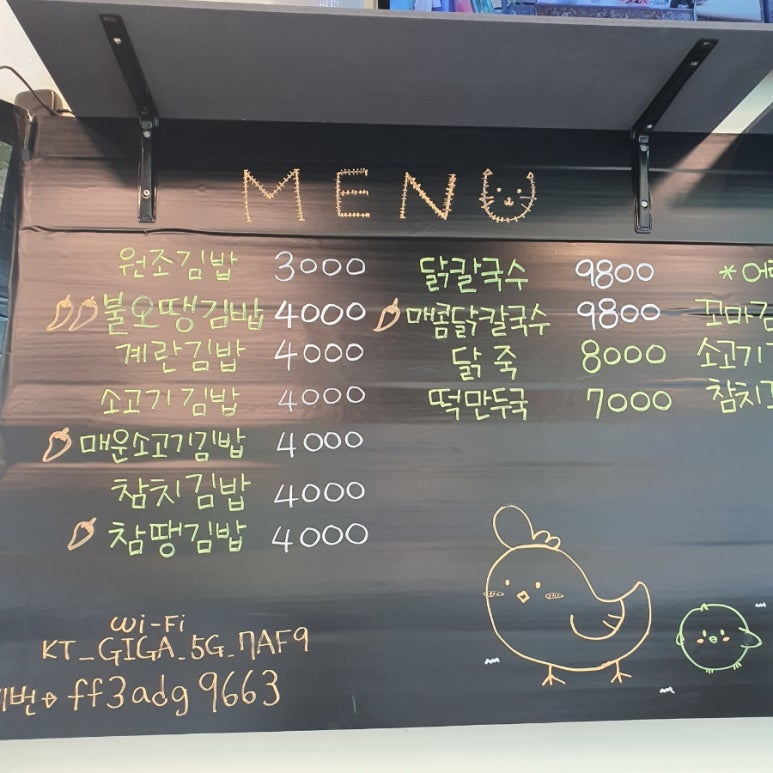 MENU
원조김밥 3000
불오땡김밥 4000
계란김밥 4000
소고기김밥 4000
매운소고기김밥 4000
참치김밥 4000
참땡김밥 4000
닭칼국수 9800
매콤닭칼국수 9800
닭죽 8000
떡만두국 7000
*어
꼬마김
소고기
참치
Wi-Fi
KT_GIGA_5G_7AF9
비번→ ff3adg9663